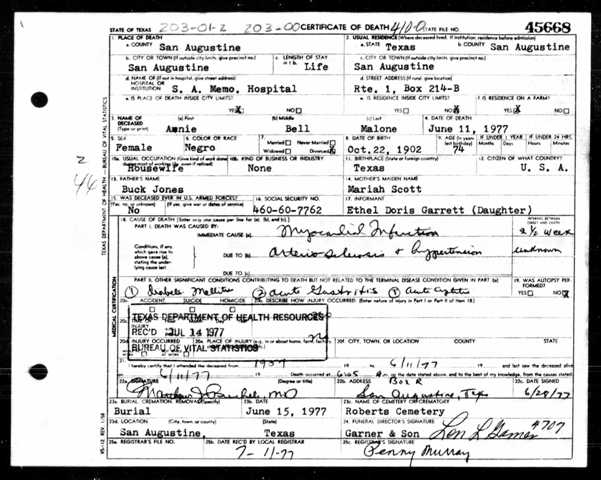 STATE OF TEXAS 203-01-2 203-00 CERTIFICATE OF DEATH 410.0 STATE FILE NO. 45668
1. PLACE OF DEATH 2. USUAL RESIDENCE (Where deceased lived. If institution: residence before admission)
a. COUNTY San Augustine a. STATE Texas b. COUNTY San Augustine
b. CITY OR TOWN (If outside city limits, give precinct no.) c. LENGTH OF STAY c. CITY OR TOWN (If outside city limits, give precinct no.)
San Augustine Life San Augustine
d. NAME OF (If not in hospital, give street address) d. STREET ADDRESS (If rural, give location)
HOSPITAL OR INSTITUTION S. A. Memo. Hospital Rte. 1, Box 214-B
e. IS PLACE OF DEATH INSIDE CITY LIMITS? e. IS RESIDENCE INSIDE CITY LIMITS? f. IS RESIDENCE ON A FARM?
YES X NO YES NO X YES NO X
3. NAME OF DECEASED (a) First (b) Middle (c) Last 4. DATE OF DEATH
(Type or print) Bell Malone June 11, 1977
5. SEX 6. COLOR OR RACE 7. Married Never Married 8. DATE OF BIRTH 9. AGE (In years last birthday) IF UNDER 1 YEAR IF UNDER 24 HRS.
Female Negro Widowed Divorced Oct.22, 1902 74 Months Days Hours Min.
10a. USUAL OCCUPATION (Give kind of work done 10b. KIND OF BUSINESS OR INDUSTRY 11. BIRTHPLACE (State or foreign country) 12. CITIZEN OF WHAT COUNTRY?
Housewife None Texas U. S. A.
13. FATHER'S NAME 14. MOTHER'S MAIDEN NAME
Buck Jones Mariah Scott
15. WAS DECEASED EVER IN U.S. ARMED FORCES? 16. SOCIAL SECURITY NO. 17. INFORMANT
(Yes, no, or unknown) (If yes, give war or dates of service)
No 460-60-7762 Ethel Doris Garrett (Daughter)
18. CAUSE OF DEATH (Enter only one cause per line for (a), (b), and (c).) INTERVAL BETWEEN ONSET AND DEATH
PART I. DEATH WAS CAUSED BY:
IMMEDIATE CAUSE (a) Myocardial Infarction
Conditions, if any, which gave rise to above cause (a), stating the underlying cause last. DUE TO (b) Arteriosclerosis + hypertension unknown
DUE TO (c)
PART II. OTHER SIGNIFICANT CONDITIONS CONTRIBUTING TO DEATH BUT NOT RELATED TO THE TERMINAL DISEASE CONDITION GIVEN IN PART I (a) 19. WAS AUTOPSY PERFORMED?
Mellitus Acute Gastritis YES NO X
20a. ACCIDENT SUICIDE HOMICIDE 20b. DESCRIBE HOW INJURY OCCURRED. (Enter nature of injury in Part I or Part II of item 18.)
TEXAS DEPARTMENT OF HEALTH RESOURCES
INJURY
REC'D JUL 14 1977
20d. INJURY OCCURRED 20f. CITY, TOWN, OR LOCATION COUNTY STATE
BUREAU OF VITAL STATISTICS
21. I hereby certify that I attended the deceased from 1957 to 6/11/77 and last saw the deceased alive
on 6/11/77 Death occurred at m. on the date stated above, and to the best of my knowledge, from the causes stated.
22a. SIGNATURE (Degree or title) 22b. ADDRESS Box R 22c. DATE SIGNED
MD San Augustine, Tex 6/29/77
23a. BURIAL, CREMATION, REMOVAL (Specify) 23b. DATE 23c. NAME OF CEMETERY OR CREMATORY
Burial June 15, 1977 Roberts Cemetery
23d. LOCATION (City, town, or county) (State) 24. FUNERAL DIRECTOR'S SIGNATURE
San Augustine, Texas Garner & Son Lon L Garner #707
25a. REGISTRAR'S FILE NO. 25b. DATE REC'D BY LOCAL REGISTRAR 25c. REGISTRAR'S SIGNATURE
7-11-77 Penny Murray
TEXAS DEPARTMENT OF HEALTH - BUREAU OF VITAL STATISTICS
MEDICAL CERTIFICATION
2
44